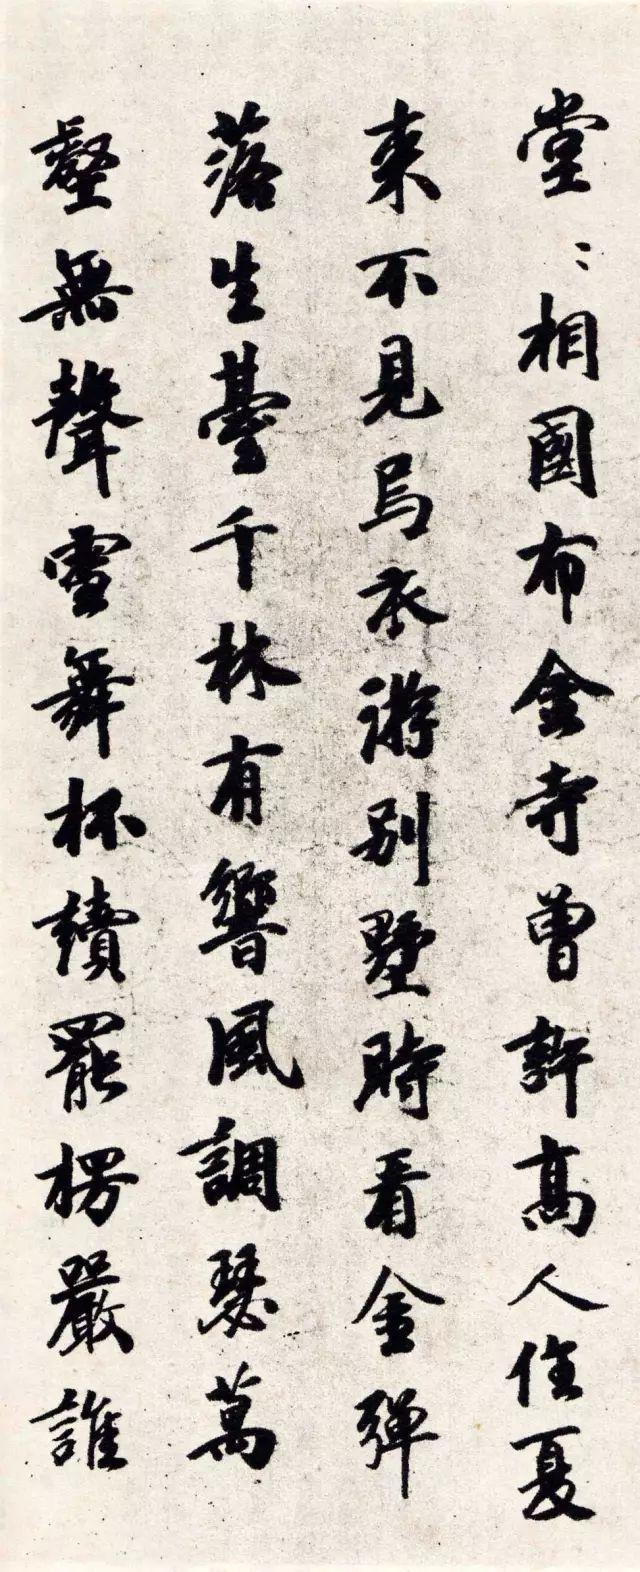 堂〻相國布金寺曾許高人住夏
來不見烏衣游別墅時看金彈
落生臺千林有響風調瑟萬
壑無聲雪舞杯讀罷楞嚴誰